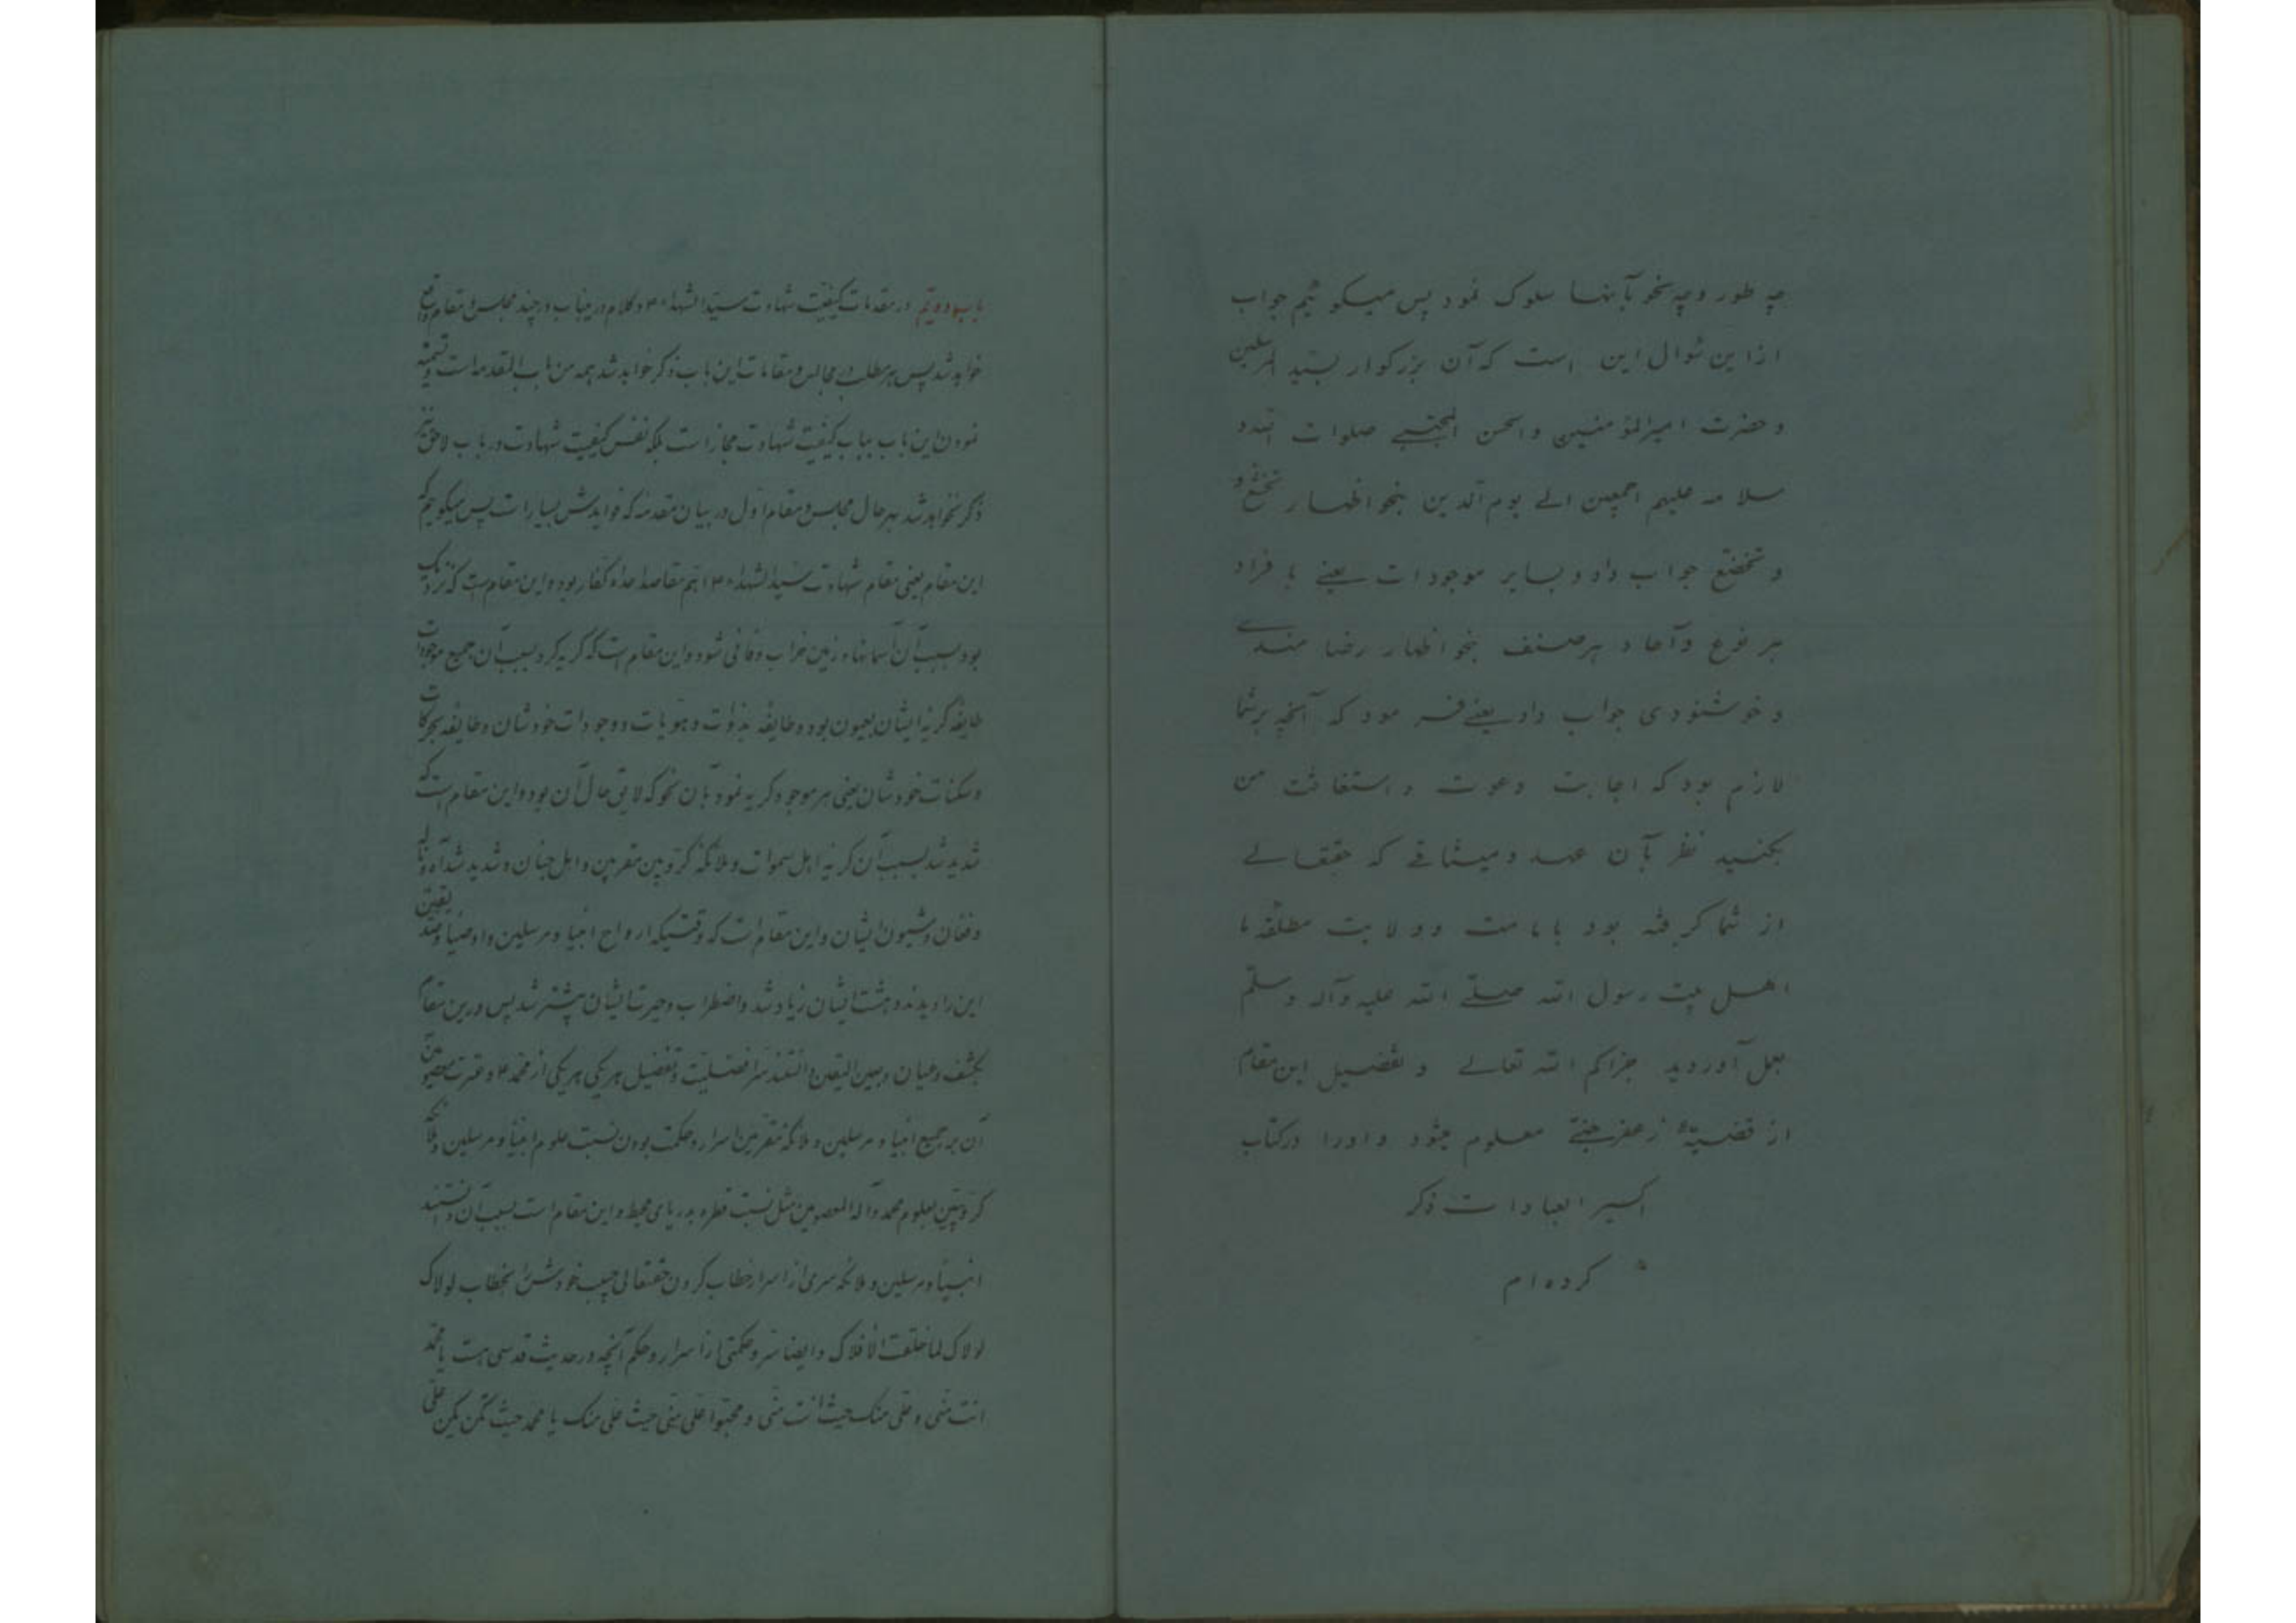 چه طور و چه نحو بآنها سلوک نمود پس میکوئیم جواب
ازاین سؤال این است که آن بزرکوار بسید المرسلین
و حضرت امیرالمؤمنین والحسن المجتبی صلوات الله و
سلامه علیهم اجمعین الی یوم الدین بنحو اظهار تخشع و
و تخضع جواب داد و بسایر موجودات یعنے با فراد
هر نوع و آحاد هر صنف بنحو اظهار رضا مندے
و خوشنودی جواب داد یعنے فرمود که آنچه بر شما
لازم بود که اجابت دعوت و استغاثت من
بکنید نظر بآن عهد و میثاقے که حقتعالے
از شما کرفته بود بامامت و ولایت مطلقه ما
اهل بیت رسول الله صلے الله علیه وآله وسلم
بعمل آوردید جزاکم الله تعالے و تفصیل این مقام
از قضیهٔ زعفر جنے معلوم میشود و اورا در کتاب
اکسیر العبادات ذکر
کرده ام
باب دویم در مقدمات کیفیت شهادت سید الشهداء ۴ و کلام در اینباب در چند مجلس و مقام واقع
خواهد شد پس هر مطلب در مجالس و مقامات این باب ذکر خواهد شد همه من باب المقدمات است و تسمیه
نمودن این باب بباب کیفیت شهادت مجاز است بلکه نفس کیفیت شهادت در باب لاحق نیز
ذکر نخواهد شد بهر حال مجلس و مقام اول در بیان مقدمه که فوایدش بسیار است پس میکوئیم که
این مقام یعنی مقام شهادت سید الشهداء ۴ اهم مقاصد اعداء کفار بود و این مقامست که نزدیک
بود بسبب آن آسمانها و زمین خراب و فانی شود و این مقام است که کریه کرد بسبب آن جمیع موجودات
طایفه کریه ایشان بعیون بود و طایفه بذوات و هویات و وجودات خودشان و طایفه بحرکات
و سکنات خودشان یعنی هر موجود کریه نمود بآن نحو که لایق حال آن بود و این مقام است که
شدید شد بسبب آن کریه اهل سموات و ملائکه کروبین مقربین و اهل جنان و شدید شد آه و ناله
و فغان و شیون ایشان و این مقام است که وقتیکه ارواح انبیا و مرسلین و اوصیا و صدیقین
این را دیدند دهشت ایشان زیاد شد و اضطراب و حیرت ایشان بیشتر شد پس درین مقام
بکشف و عیان و بعین الیقین دانستند سر افضلیت و تفضیل هر یکی هر یکی از محمد ۴ و عترت معصومین
آن بر جمیع انبیا و مرسلین و ملائکه مقربین اسرار و حکمت بودن نسبت علوم انبیا و مرسلین و ملائکه
کروبین بعلوم محمد و آله المعصومین مثل نسبت قطره بدریای محیط و این مقام است بسبب آن دانستند
انبیا و مرسلین و ملائکه سری از اسرار خطاب کردن حقتعالی حبیب خودش را بخطاب لولاک
لولاک لما خلقت الافلاک و ایضا سر و حکمتی از اسرار و حکم آنچه در حدیث قدسی است یا محمد
انت منی و علی منک حیث انت منی و محبوا علی منی حیث علی منک یا محمد حیث تکن یکن علی